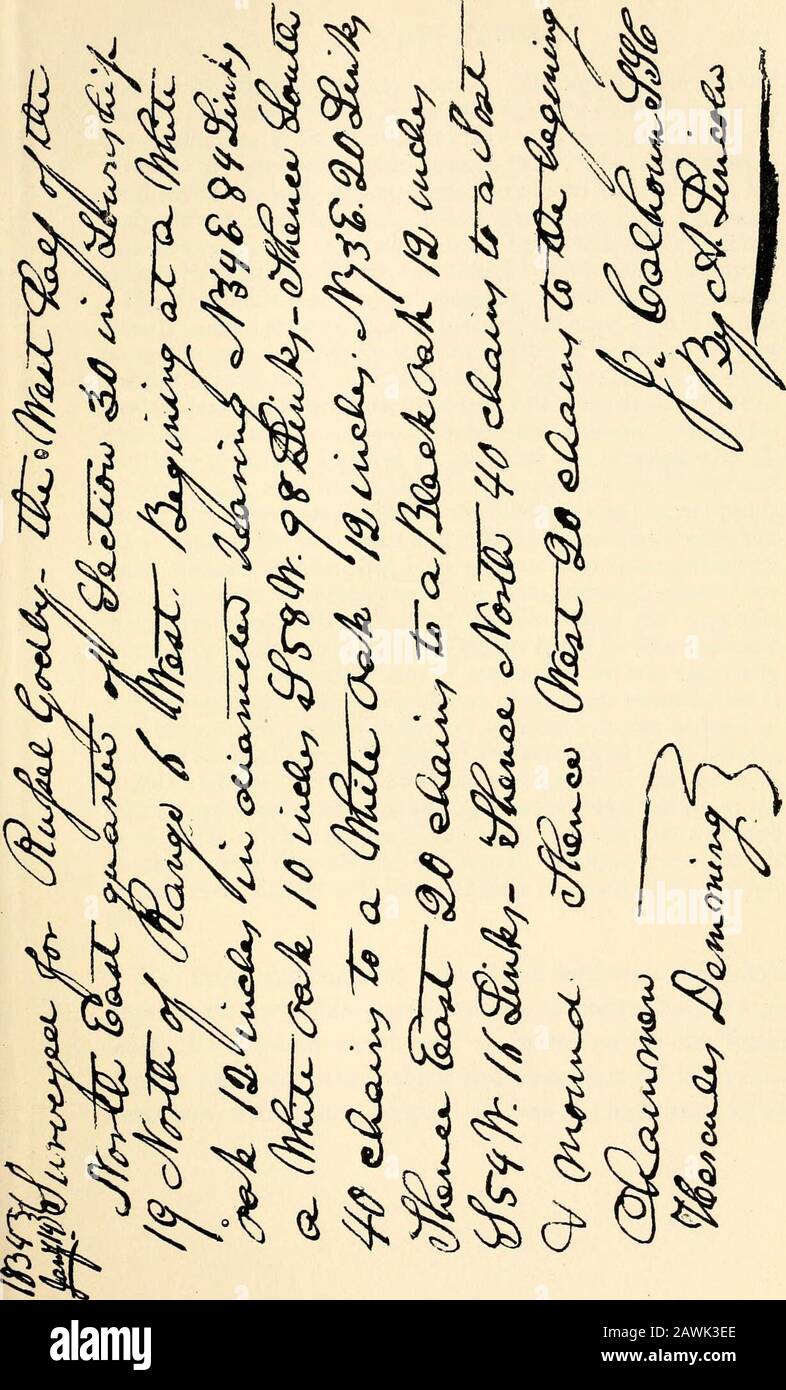 1834
Jany 14 Surveyed for Russel Godby - the West half of the
North East quarter of Section 30 in Township
19 North of Range 6 West. Begining at a White
oak 12 inches in diameter bearing N 34 E. 84 Links,
a White oak 10 inches S 58 W. 98 Links - Thence South
40 chains to a White oak 12 inches. N 73 E. 20 Links,
Thence East 20 chains to a Black oak 12 inches
S 54 W. 16 Links - Thence North 40 chains to a Post
& mound. Thence West 20 chains to the begining
Chainmen J. Calhoun S.S.C
Hercules Demming By A. Lincoln
alamy
a
alamy
Image ID: 2AWK3EE
www.alamy.com